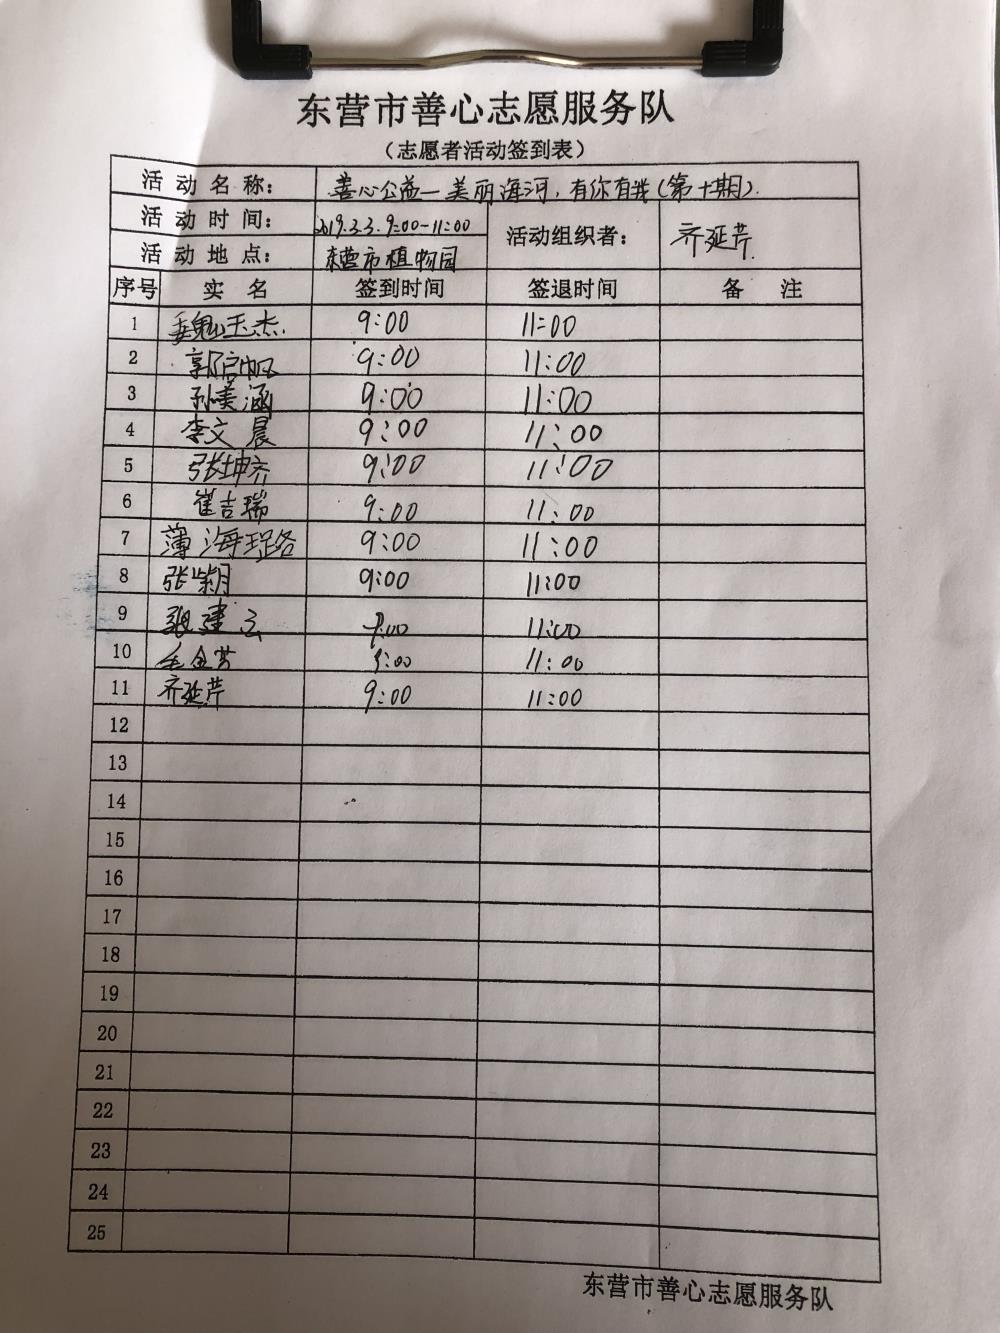 东营市善心志愿服务队
（志愿者活动签到表）
活动名称： 善心公益—美丽海河，有你有我（第十期）.
活动时间： 2019.3.3. 9:00-11:00 活动组织者： 齐延芹.
活动地点： 东营市植物园
序号 实 名 签到时间 签退时间 备 注
1 魏玉杰 9:00 11:00
2 郭启帆 9:00 11:00
3 孙美涵 9:00 11:00
4 李文晨 9:00 11:00
5 张坤齐 9:00 11:00
6 崔吉瑞 9:00 11:00
7 薄海 9:00 11:00
8 张 9:00 11:00
9 张建云 9:00 11:00
10 毛金芳 9:00 11:00
11 齐延芹 9:00 11:00
12
13
14
15
16
17
18
19
20
21
22
23
24
25
东营市善心志愿服务队